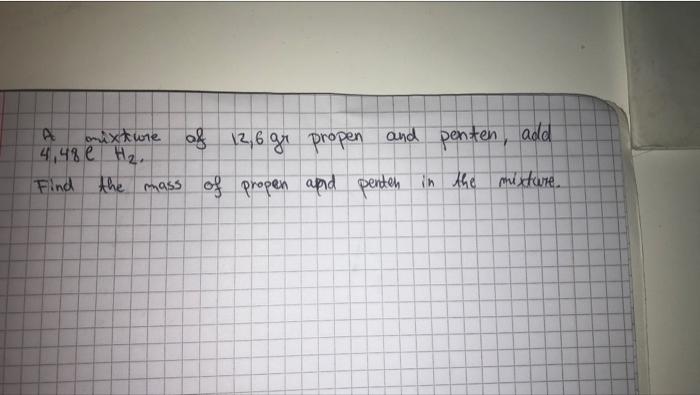 A mixture of 12,6 gr propen and penten, add
4,48 l H2.
Find the mass of propen and penten in the mixture.